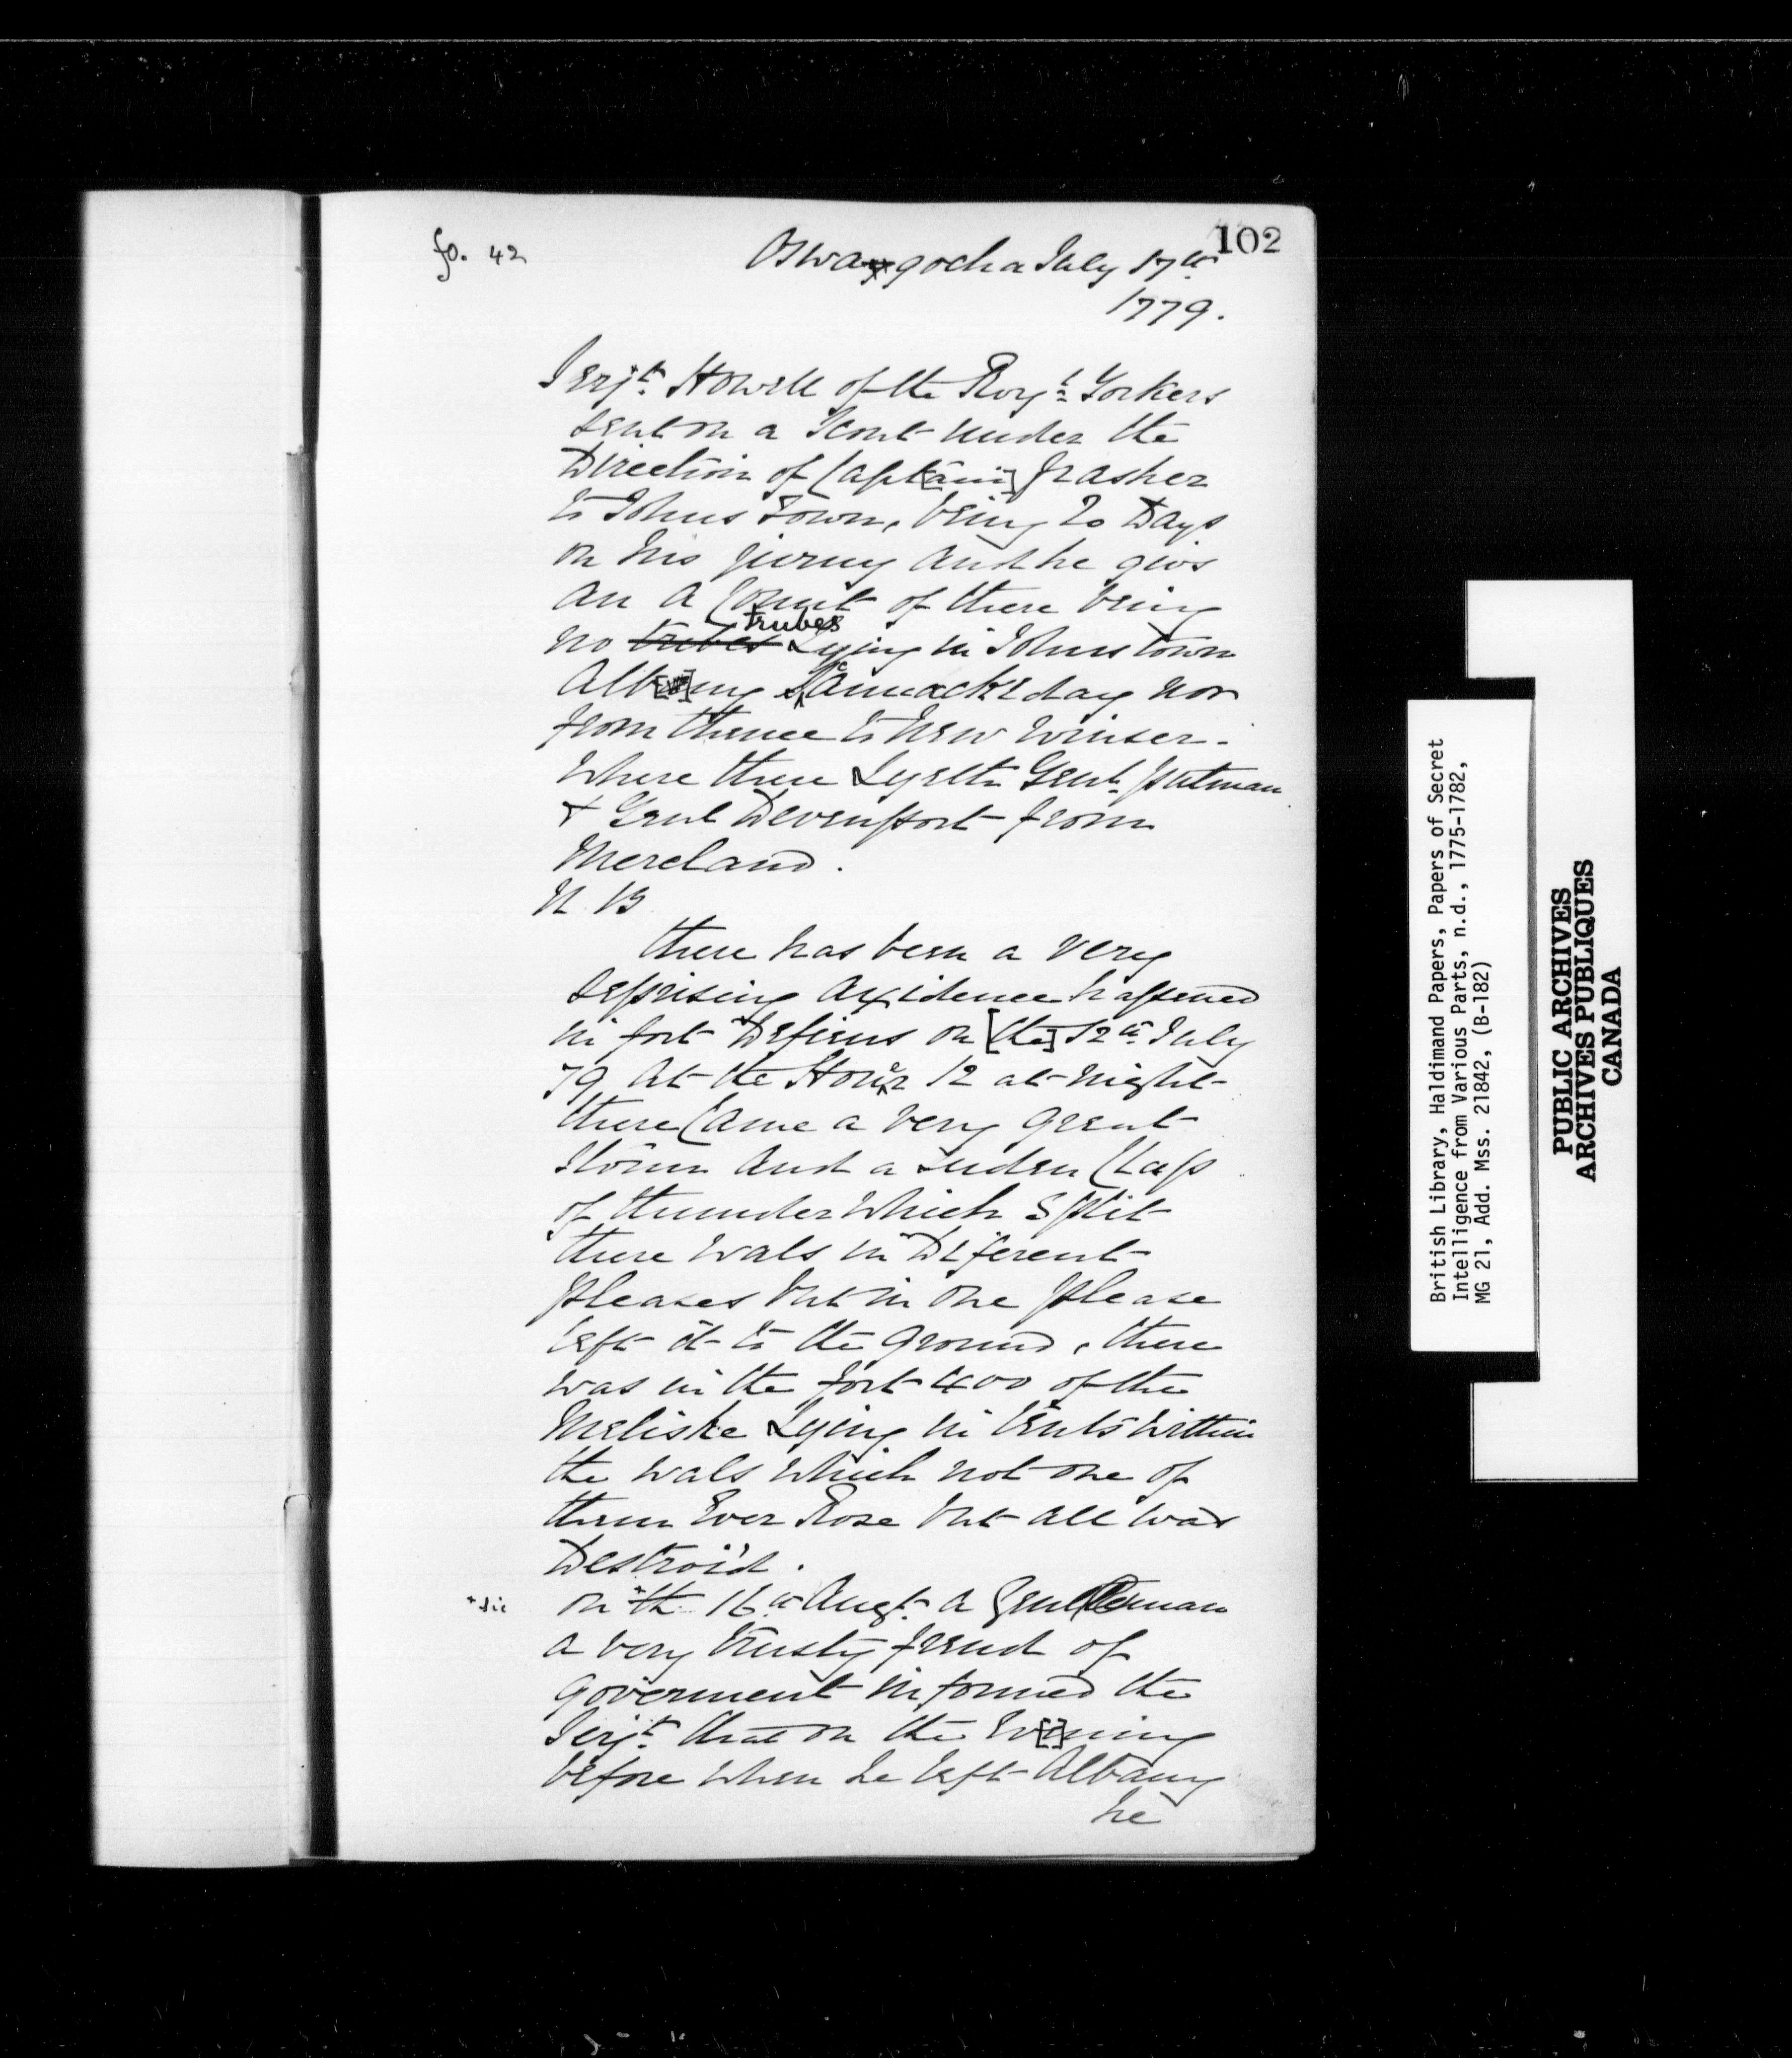 fo. 42
102
Oswagocha July 17th
1779.
Serjt. Howell of the Royl. Yorkers
sent on a Scout under the
Direction of Capt[ain] Frasher
to Johns Town, being 20 Days
on his jurney and he givs
an A Count of there being
no trubes Lying in Johnstown
Alb[]ny Scannackeday nor
from thence to New Winser.
Where there Lyeth Genl. Putman
& Genl Devenport from
Mereland.
N B
there has been a very
seprising Axidence hapened
in fort Defiens on [the] 12th July
79 at the Hour 12 at night
there Came a very great
Storm and a suden Clap
of thunder Which Split
there Wals in Diferent
pleases but in one please
left it to the Ground, there
was in the fort 400 of the
Meliske Lying in tents Within
the Wals Which not one of
them Ever Rose but all was
Destroi'd.
+ sic on + th 16th Augt. a Gentleman
a very trusty frend of
Goverment informed the
Serjt. that on the Ev[e]ning
before when he left Albany
he
British Library, Haldimand Papers, Papers of Secret
Intelligence from Various Parts, n.d., 1775-1782,
MG 21, Add. Mss. 21842, (B-182)
PUBLIC ARCHIVES
ARCHIVES PUBLIQUES
CANADA